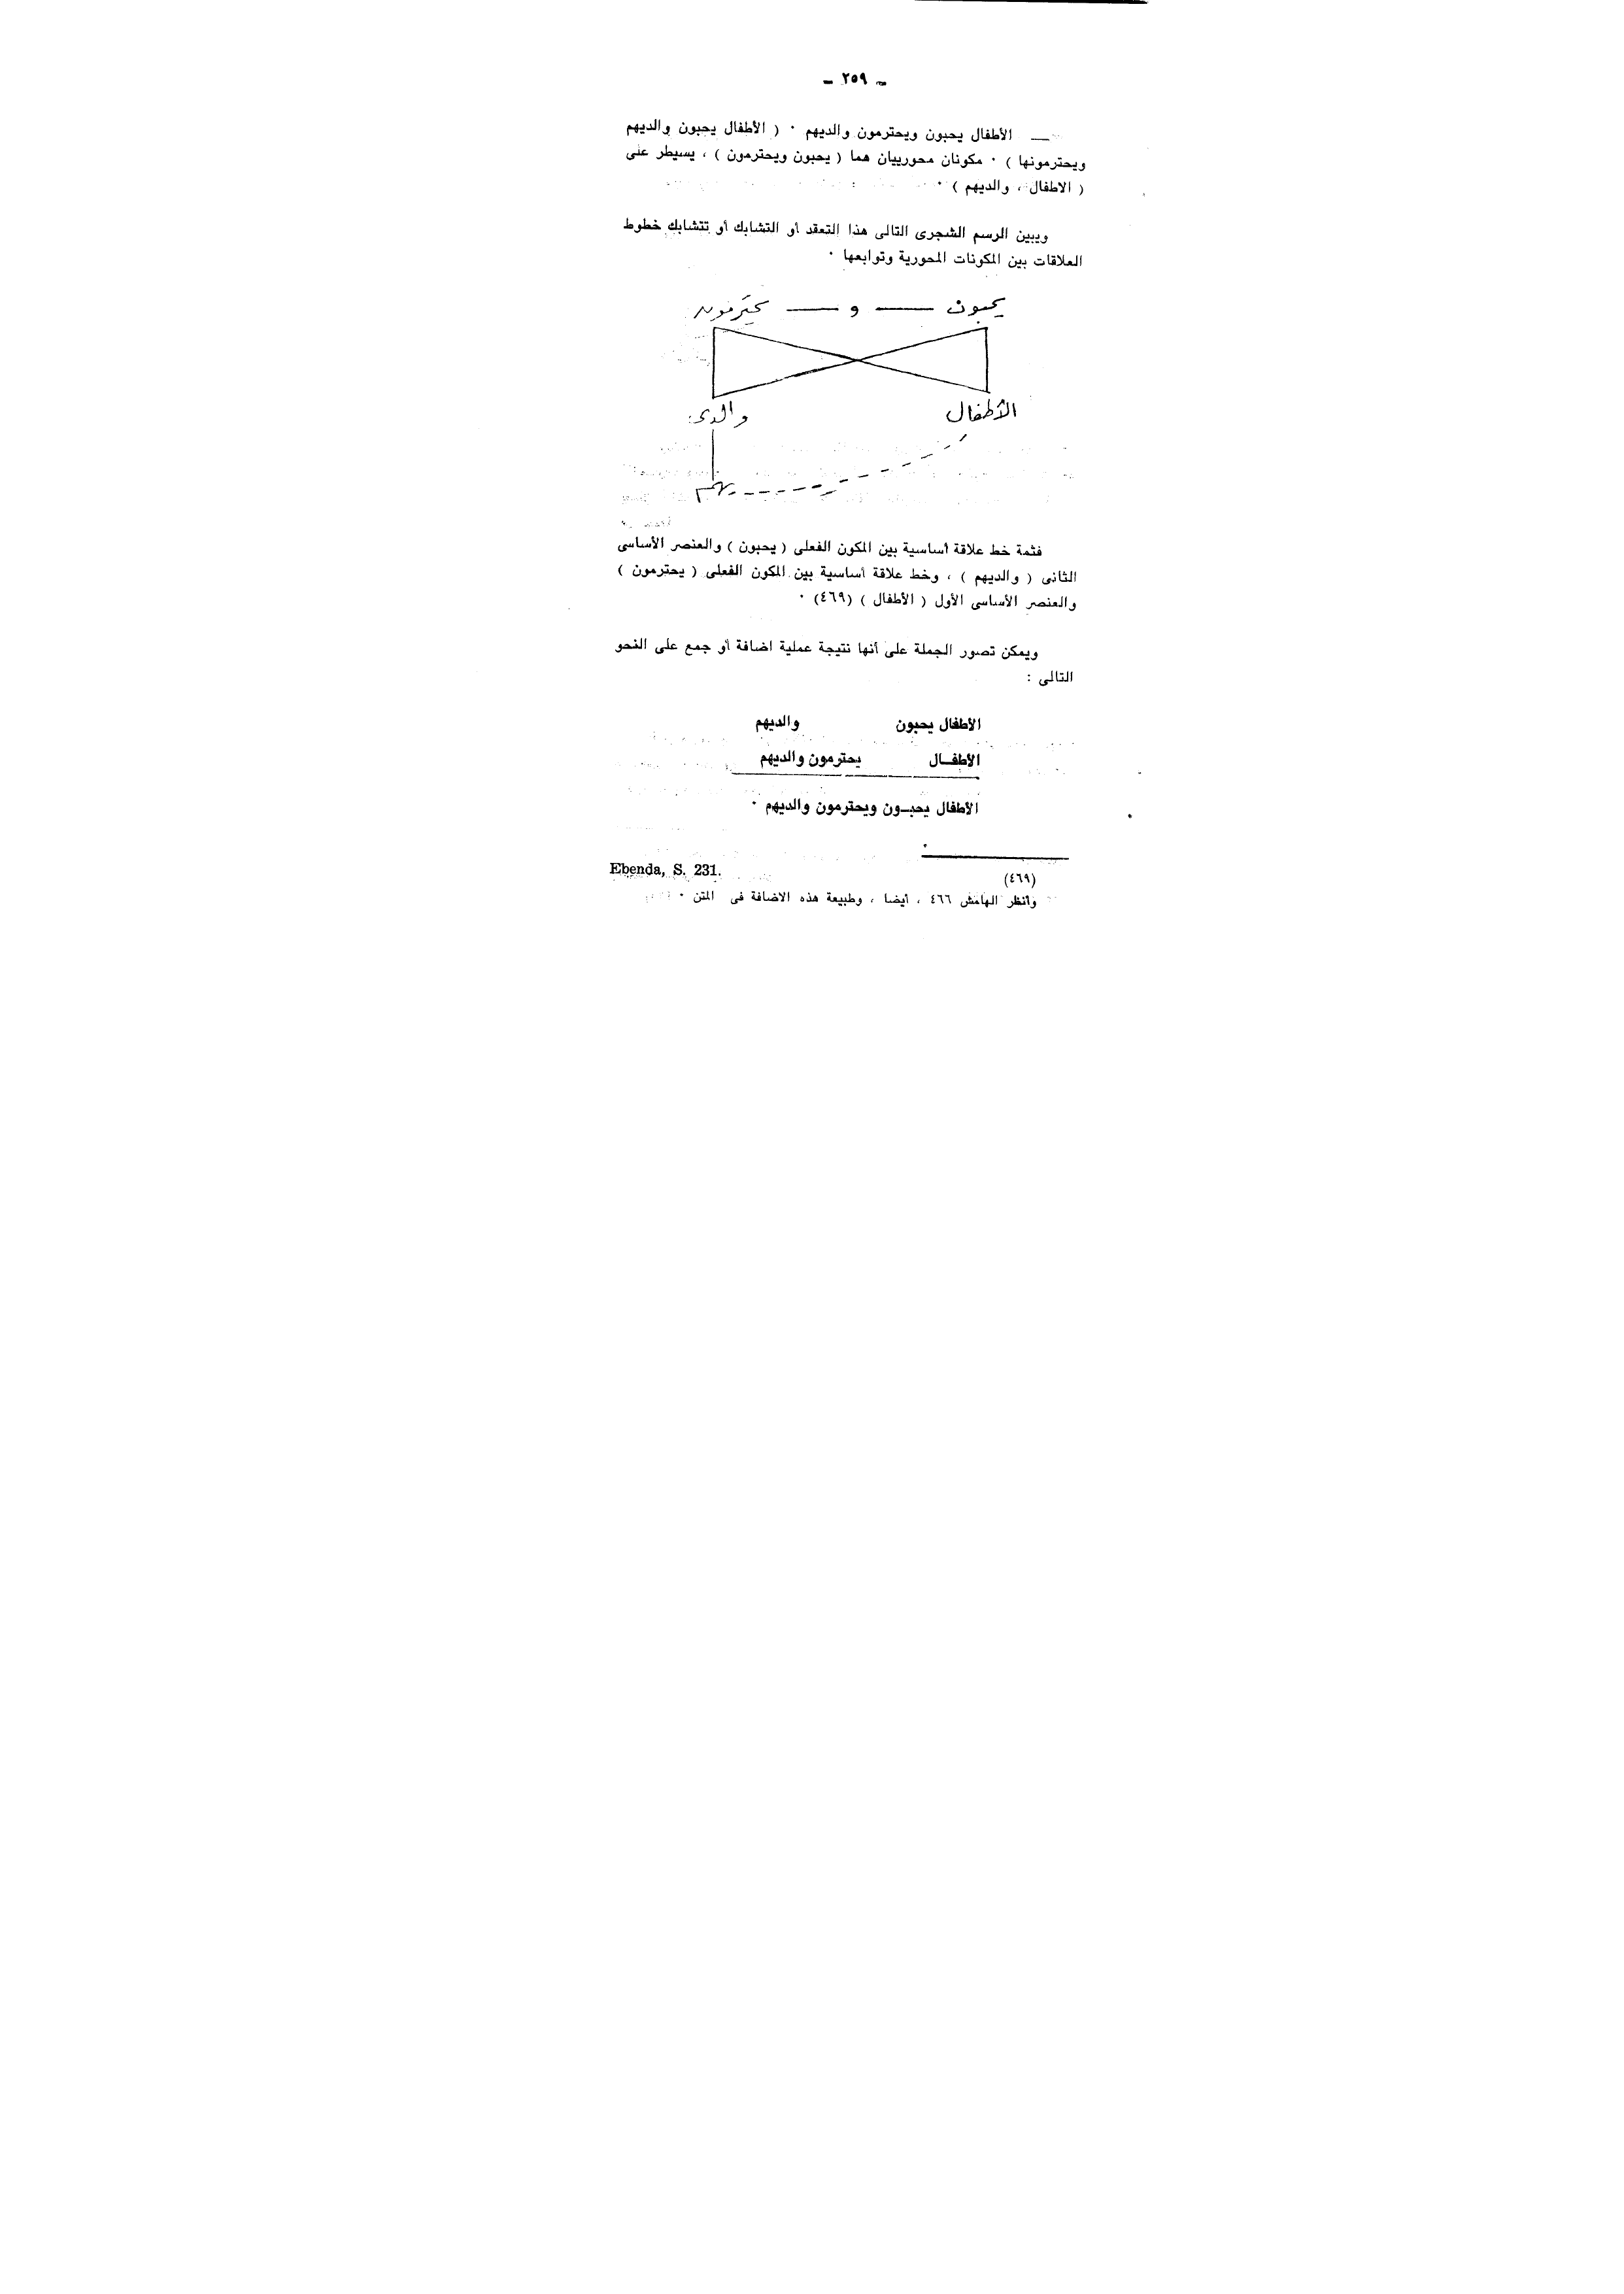 ـ ٢٥٩ ـ
ـــ الأطفال يحبون ويحترمون والديهم ٠ ( الأطفال يحبون والديهم
ويحترمونها ) ٠ مكونان محورييان هما ( يحبون ويحترمون ) ، يسيطر على
( الاطفال ، والديهم ) ٠
ويبين الرسم الشجرى التالى هذا التعقد أو التشابك أو تتشابك خطوط
العلاقات بين المكونات المحورية وتوابعها ٠
يحبون ــــ و ــــ يحترمون
الأطفال والدي
هم
فثمة خط علاقة أساسية بين المكون الفعلى ( يحبون ) والعنصر الأساسى
الثانى ( والديهم ) ، وخط علاقة أساسية بين المكون الفعلى ( يحترمون )
والعنصر الأساسى الأول ( الأطفال ) (٤٦٩) ٠
ويمكن تصور الجملة على أنها نتيجة عملية اضافة أو جمع على النحو
التالى :
الأطفال يحبون والديهم
الأطفــال يحترمون والديهم
الأطفال يحبــون ويحترمون والديهم ٠
(٤٦٩) Ebenda, S. 231.
وانظر الهامش ٤٦٦ ، أيضا ، وطبيعة هذه الاضافة فى المتن ٠